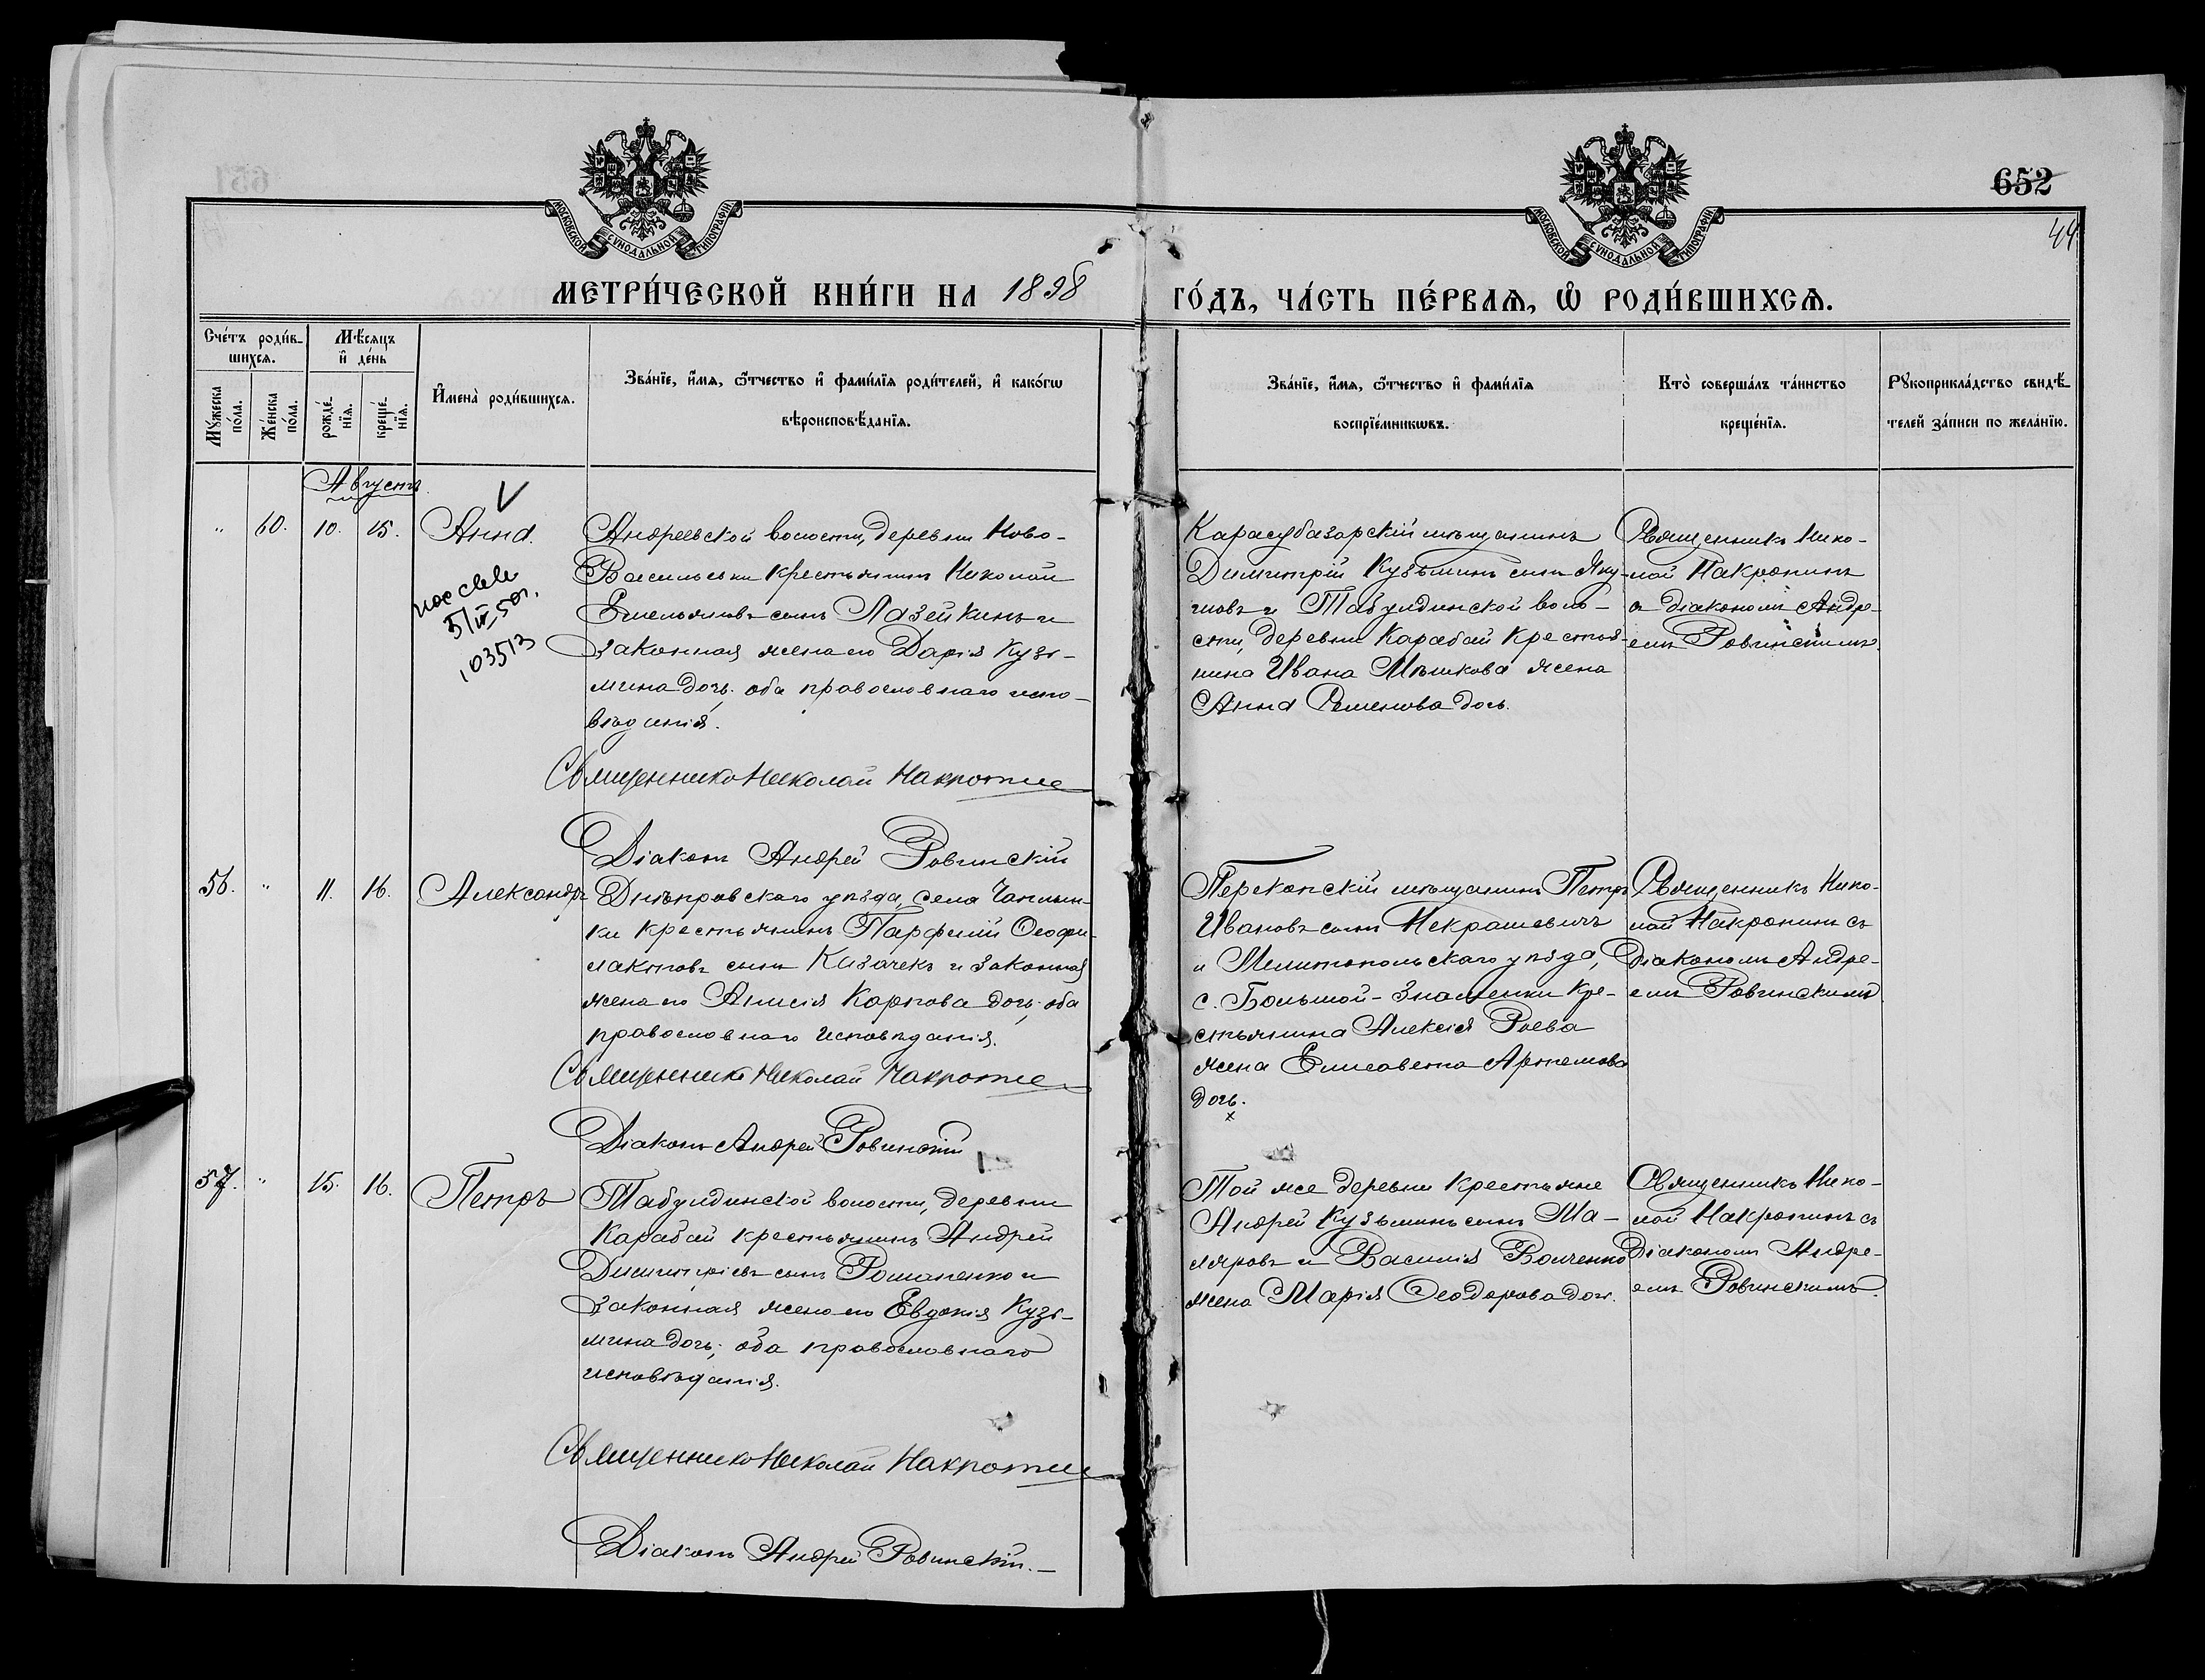 652
44
МОСКОВСКОЙ СѴНОДАЛЬНОЙ ТИПОГРАФІИ
МОСКОВСКОЙ СѴНОДАЛЬНОЙ ТИПОГРАФІИ
МЕТРИ́ЧЕСКОЙ КНИ́ГИ НА 1898 ГО́ДЪ, ЧА́СТЬ ПЕ́РВАѦ, Ѡ҆ РОДИ́ВШИХСѦ.
Сче́тъ роди́в-
шихсѧ.
Мꙋ́жеска по́ла.
Же́нска по́ла.
Мѣ́сѧцъ
и҆ де́нь
рожде́-нїѧ.
креще́-нїѧ.
И҆мена̀ роди́вшихсѧ.
Зва́нїе, и҆́мѧ, ѻ҆́тчество и҆ фами́лїѧ роди́телей, и҆ како́гѡ
вѣроисповѣ́данїѧ.
Зва́нїе, и҆́мѧ, ѻ҆́тчество и҆ фами́лїѧ
воспрїе́мникѡвъ.
Кто̀ соверша́лъ та́инство
креще́нїѧ.
Рꙋкоприкла́дство свидѣ́-
телей за́писи по жела́нїю.
Августъ
„ 60. 10. 15. Анна.
5/IV 50г.
103513
Андреевской волости, деревни Ново-
Васильевки крестьянинъ Николай
Емельяновъ сынъ Лазейкинъ и
законная жена его Дарія Кузь-
мина дочь; оба православнаго испо-
вѣданія.
Священникъ Николай Накропин
Діаконъ Андрей Ровинскій
Карасубазарскій мѣщанинъ
Димитрій Кузьминъ сынъ Яку-
шовъ и Табулдинской воло-
сти, деревни Карабай крестья-
нина Ивана Мѣшкова жена
Анна Семенова дочь.
Священникъ Нико-
лай Накропинъ
с діакономъ Андре-
емъ Ровинскимъ.
56. „ 11. 16. Александръ
Днѣпровскаго уѣзда, села Чаплын-
ки крестьянинъ Парфеній Ѳеофи-
лактовъ сынъ Казачекъ и законная
жена его Анисія Карпова дочь; оба
православнаго исповѣданія.
Священникъ Николай Накропин
Діаконъ Андрей Ровинскій
Перекопскій мѣщанинъ Петръ
Ивановъ сынъ Некрашевичъ
и Мелитопольскаго уѣзда,
с. Большой-Знаменки кре-
стьянина Алексія Роева
жена Елисавета Артемова
дочь.
Священникъ Нико-
лай Накропинъ съ
діакономъ Андре-
емъ Ровинскимъ
57. „ 15. 16. Петръ
Табулдинской волости, деревни
Карабай крестьянинъ Андрей
Димитріевъ сынъ Романенко и
законная жена его Евдокія Кузь-
мина дочь; оба православнаго
исповѣданія.
Священникъ Николай Накропин
Діаконъ Андрей Ровинскій.
Той же деревни крестьяне
Андрей Кузьминъ сынъ Ма-
ляровъ и Василія Волченко
жена Марія Ѳеодорова дочь.
Священникъ Нико-
лай Накропинъ съ
діакономъ Андре-
емъ Ровинскимъ.